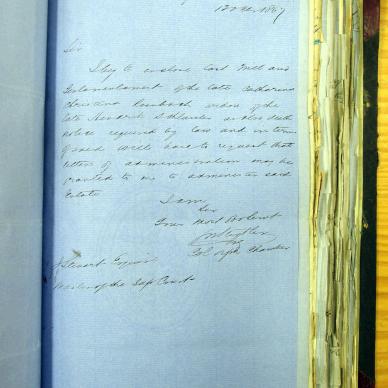 1867
Sir
I beg to enclose last Will and
Testamentament of the late Catharina
Christina widow of the
late Hendrik as also death
notice required by law and in terms
of said Will have to request that
letters of administration may be
granted to me to administer said
Estate
I am
Sir
Your Most Obdient
Orph Chamber
J Steuart Esquire
Master of the Sup Court